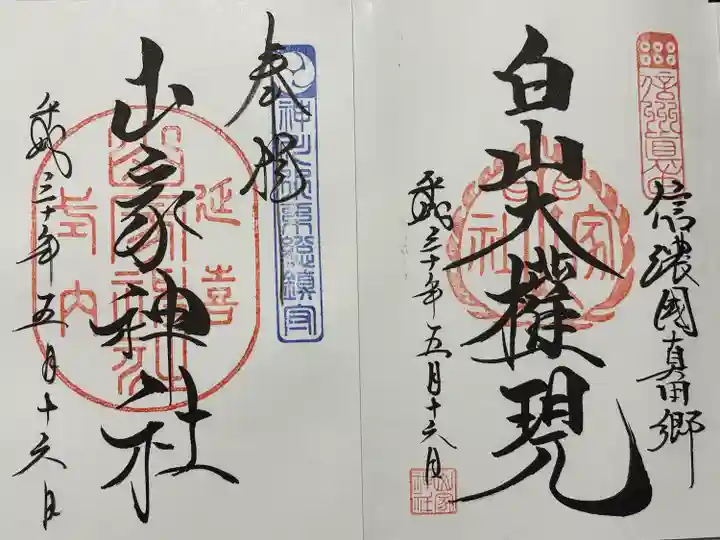 信州真田
信濃國真田郷
白山大権現
山家神社
平成三十年五月十六日
山家神社
奉拝
山家神社
延喜
式内
平成三十年五月十六日